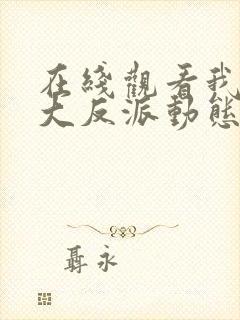 在綫觀看我
大反派動態
聶永